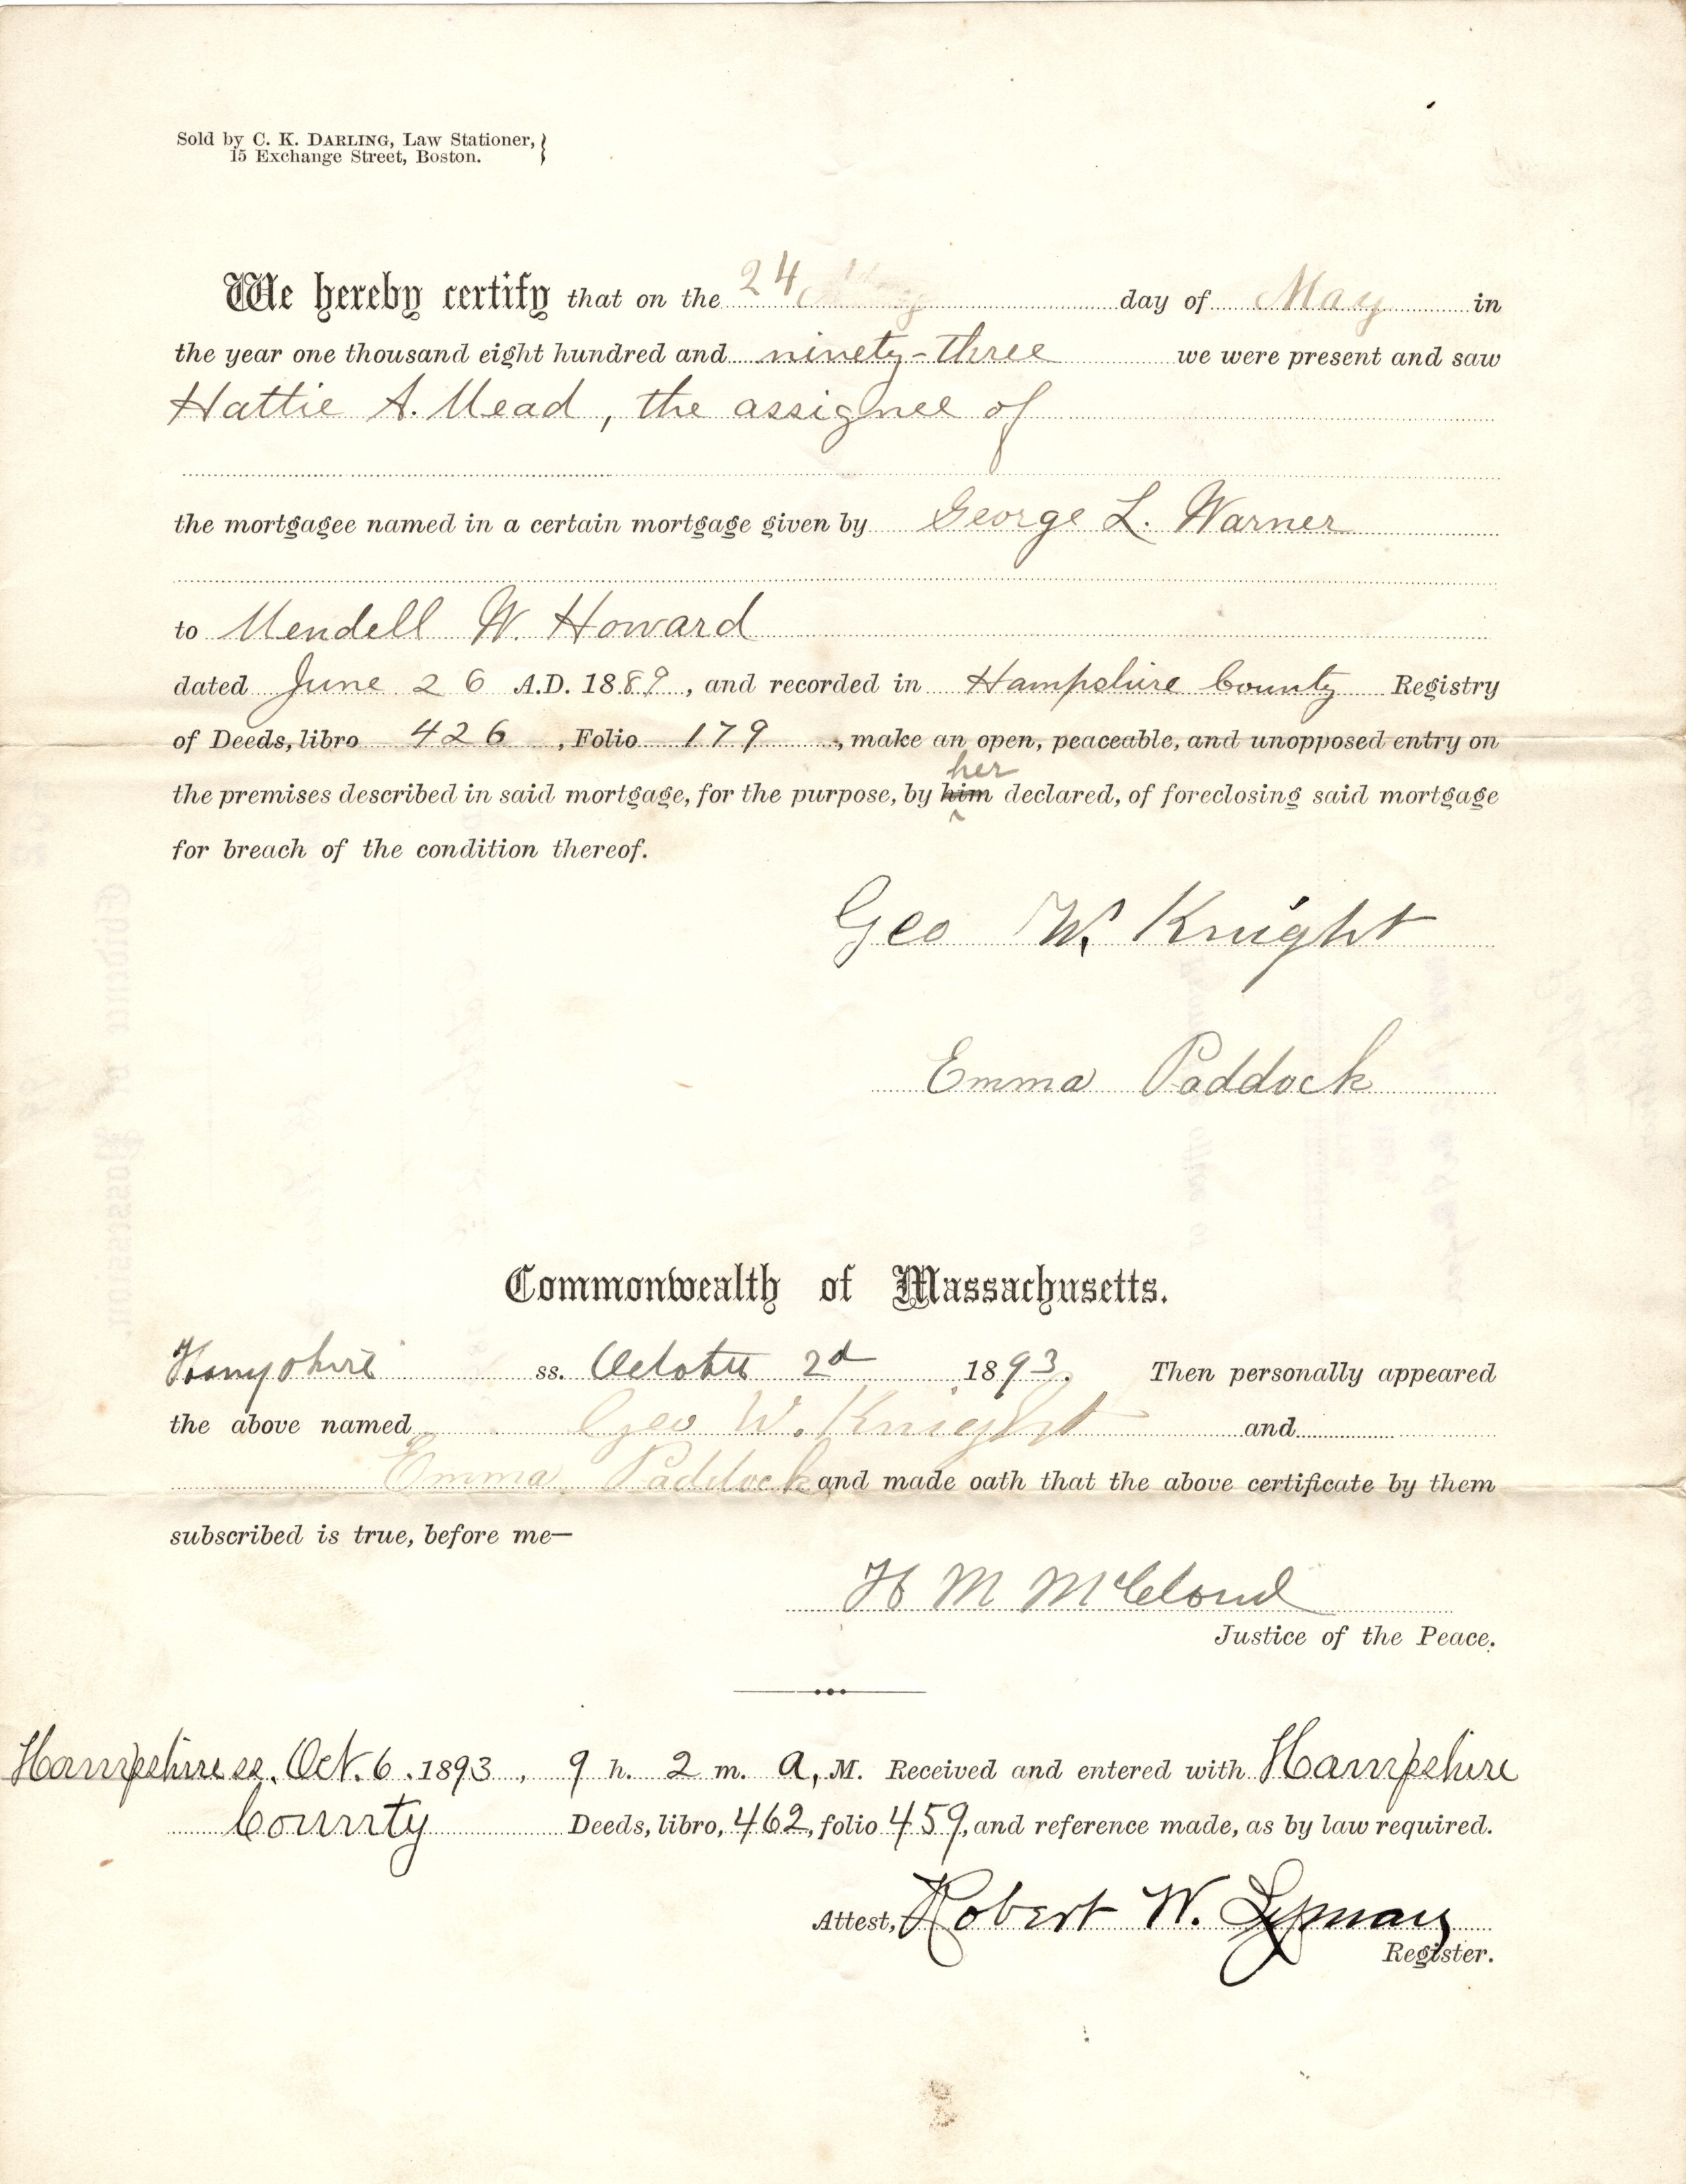 Sold by C. K. DARLING, Law Stationer,
15 Exchange Street, Boston.
We hereby certify that on the 24 day of May in
the year one thousand eight hundred and ninety-three we were present and saw
Hattie A. Mead, the assignee of
the mortgagee named in a certain mortgage given by George L. Warner
to Mendell W. Howard
dated June 26 A.D. 1889, and recorded in Hampshire County Registry
of Deeds, libro 426, Folio 179, make an open, peaceable, and unopposed entry on
her
the premises described in said mortgage, for the purpose, by him declared, of foreclosing said mortgage
for breach of the condition thereof.
Geo W. Knight
Emma Paddock
Commonwealth of Massachusetts.
Hampshire ss. October 2d 1893. Then personally appeared
the above named Geo W. Knight and
Emma Paddock and made oath that the above certificate by them
subscribed is true, before me—
H M McCloud
Justice of the Peace.
Hampshire ss. Oct. 6. 1893, 9 h. 2 m. A, M. Received and entered with Hampshire
County Deeds, libro, 462, folio 459, and reference made, as by law required.
Attest, Robert W. Lyman
Register.